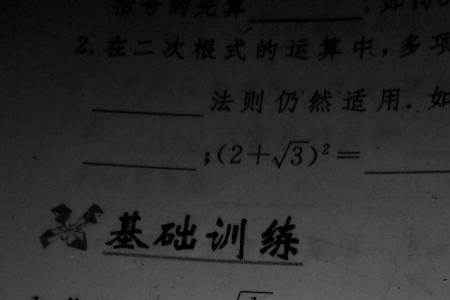 括号的先算________.如
2.在二次根式的运算中,多项
________法则仍然适用.如
________;(2+√3)²=________
基础训练